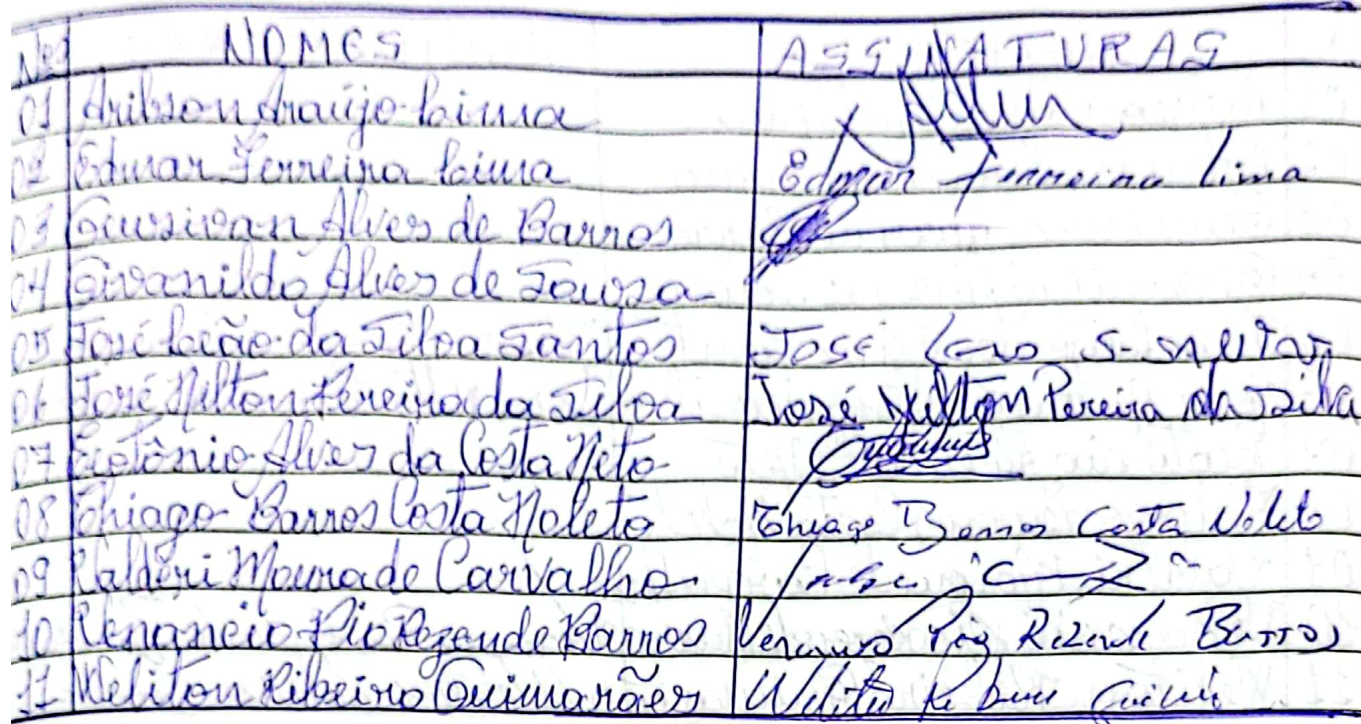 Nº NOMES ASSINATURAS
01 Aribson Araújo Lima
02 Edmar Ferreira Lima Edmar Ferreira Lima
03 Alves de Barros
04 Givanildo Alves de Souza
05 José Leão da Silva Santos José Leão S. Santos
06 José Nilton Pereira da Silva José Nilton Pereira da Silva
07 Teotônio Alves da Costa Neto
08 Thiago Barros Costa Noleto Thiago Barros Costa Noleto
09 Valderi Moura de Carvalho
10 Venancio Pio Rezende Barros Venancio Pio Rezende Barros
11 Weliton Ribeiro Guimarães Weliton Ribeiro